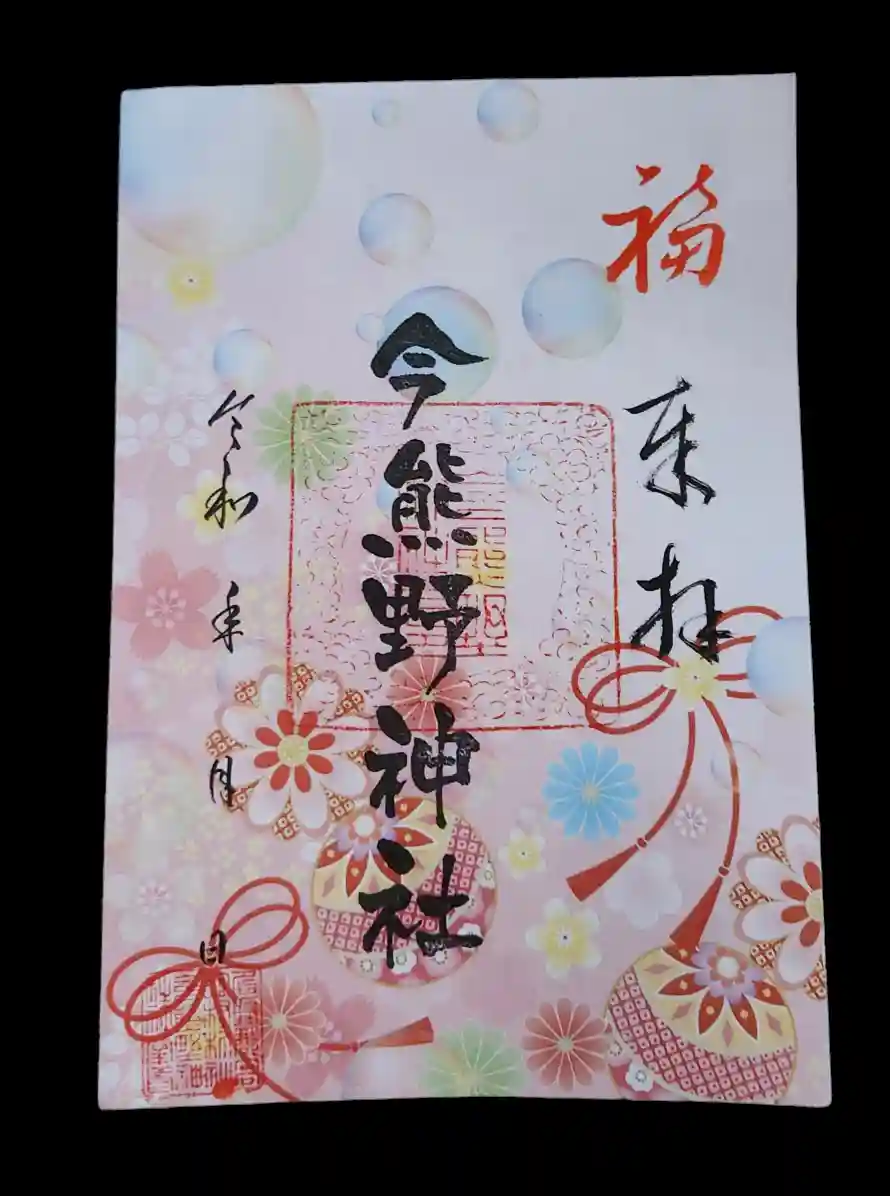 福
来拝
今熊野神社
令和 年 月 日